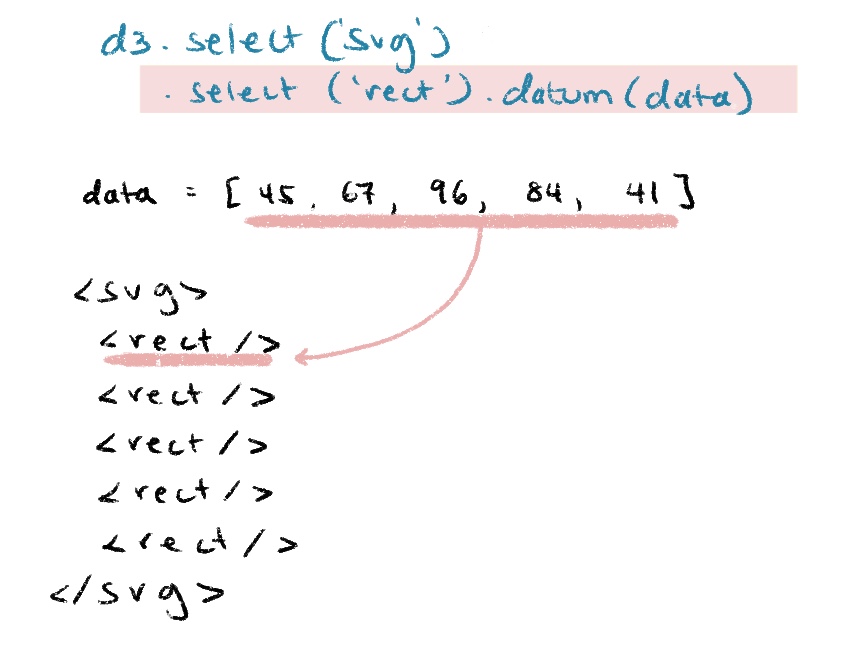 d3. select ('svg')
. select ('rect') . datum (data)
data = [ 45, 67, 96, 84, 41 ]
<svg>
<rect />
<rect />
<rect />
<rect />
<rect />
</svg>